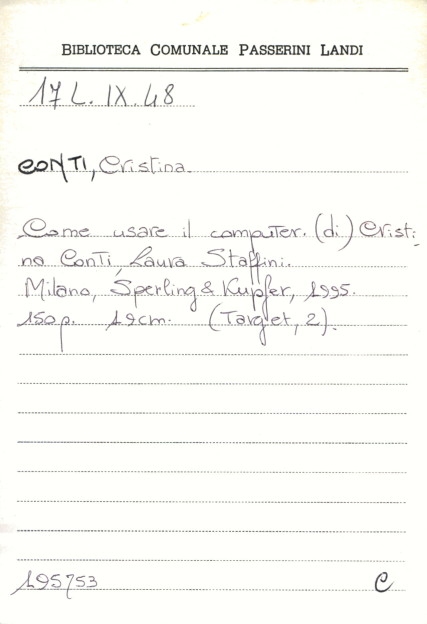 BIBLIOTECA COMUNALE PASSERINI LANDI
17 L. IX. 48
CONTI, Cristina.
Come usare il computer. (di) Cristi-
na Conti, Laura Staffini.
Milano, Sperling & Kupfer, 1995.
150 p. 19cm. (Target, 2).
195753 C